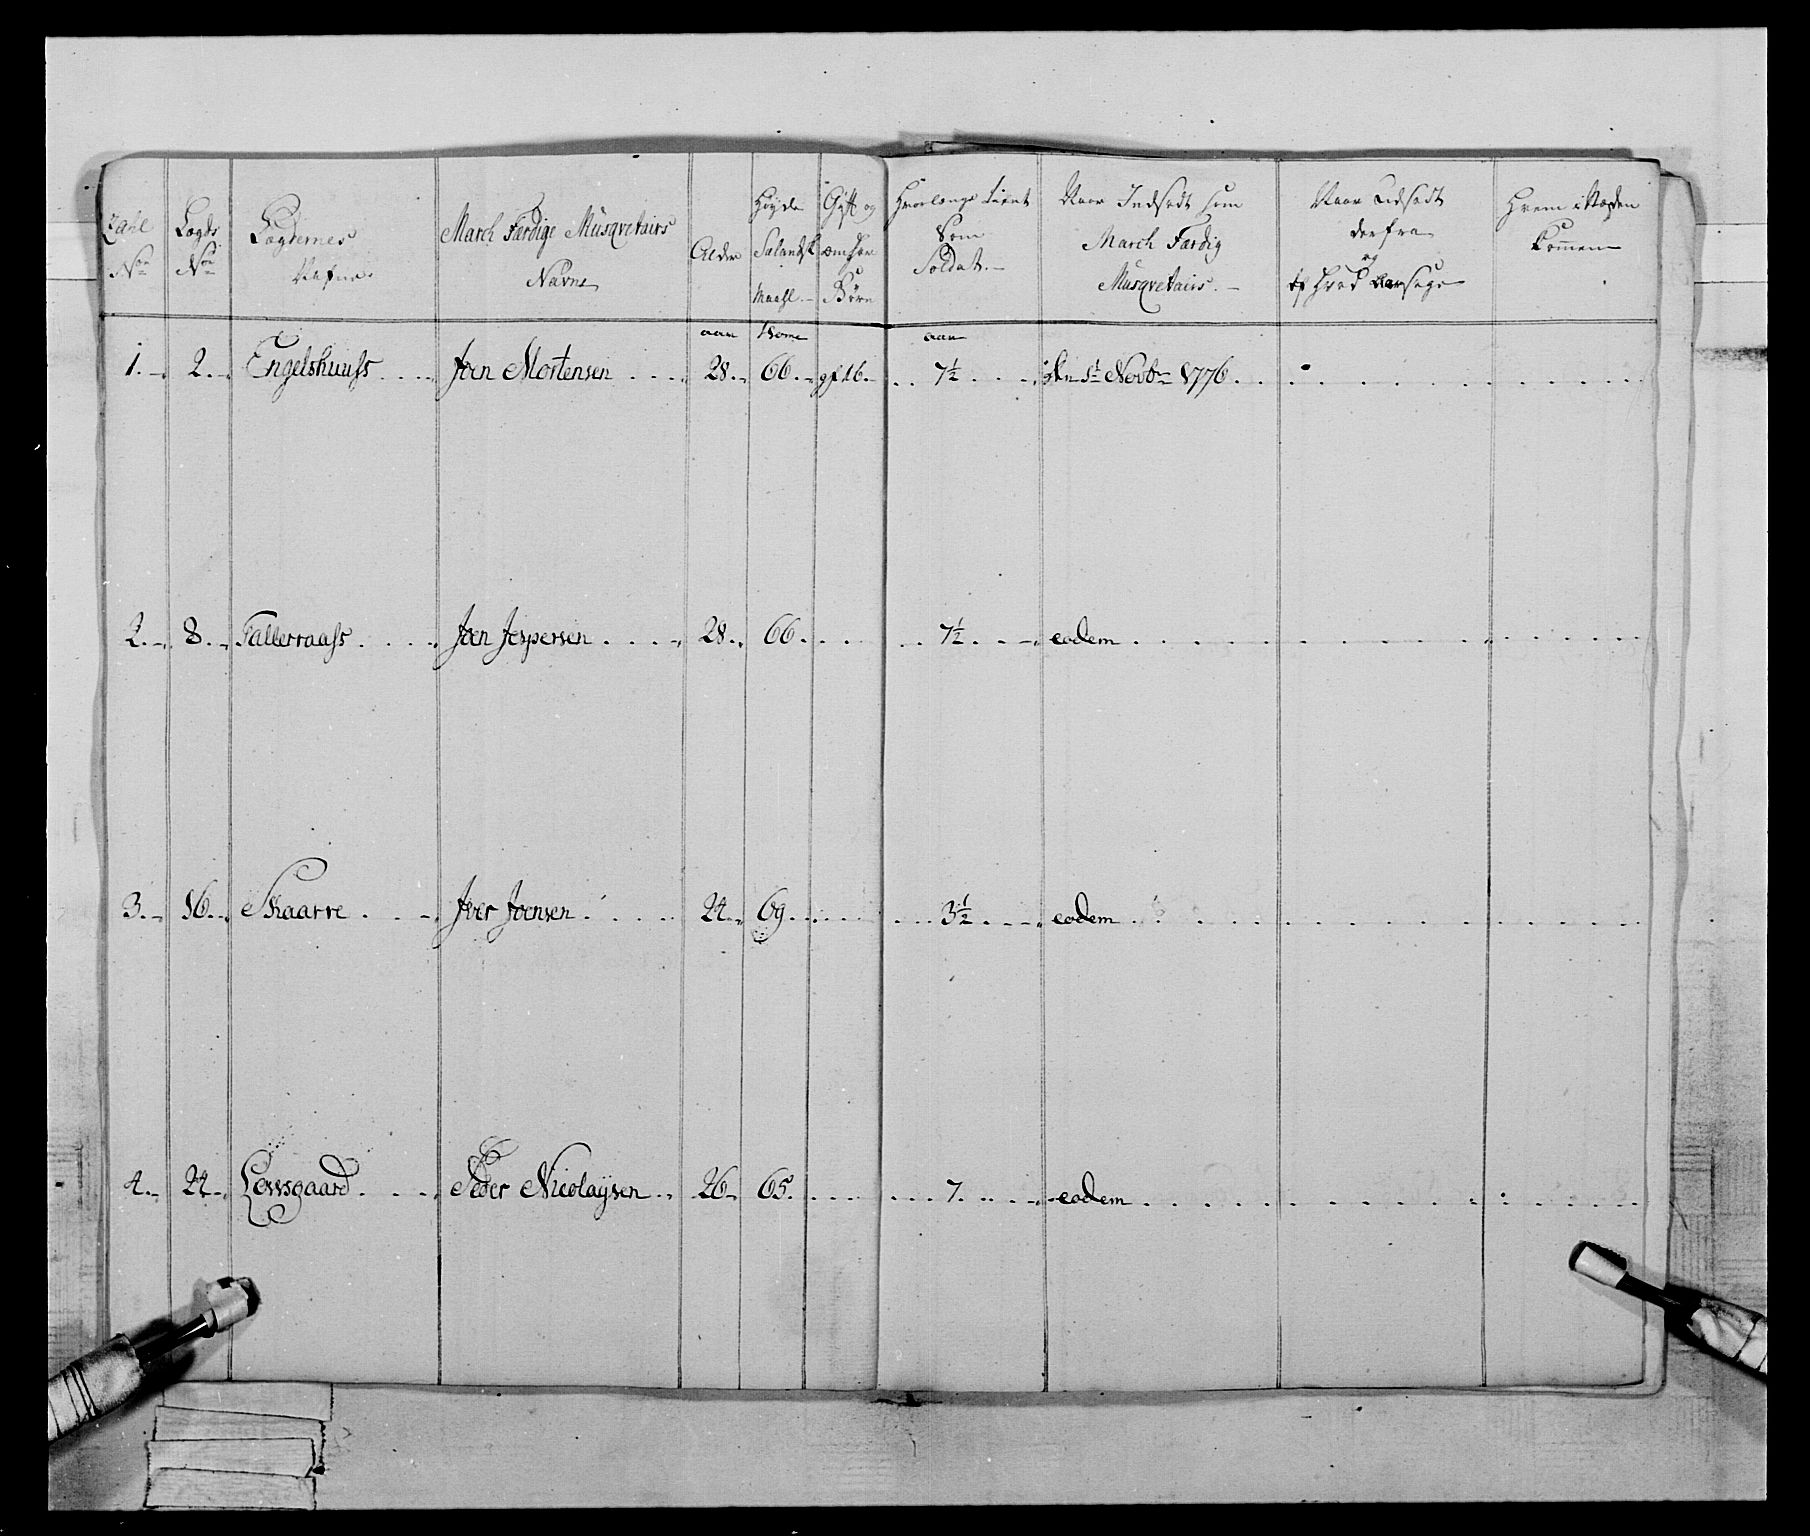 Zahl No
Lægds No
Lægdernes Nafne
March Færdige Musqvetairs Navne
Alder
Høyde Sælandsk Maahl.
Gift og ... Børn
Hvorlenge tient Som Soldat.
Naar Indsadt som March Færdig Musqvetairs.
Naar Udsadt derfra og af Hvad Aarsage
Hvem i Stæden kommen
aar Tome aar
1. 2. Engelshuuss Joen Mortensen 28. 66. 7½ den 1te Novbr 1776.
2. 8. Fallerraass Joen Jespersen 28. 66. 7½ eodem
3. 16. Skaarre Iver Joensen 24. 69. 3½ eodem
4. 24. Lovsgaard Peder Nicolaysen 26. 65. 7. eodem